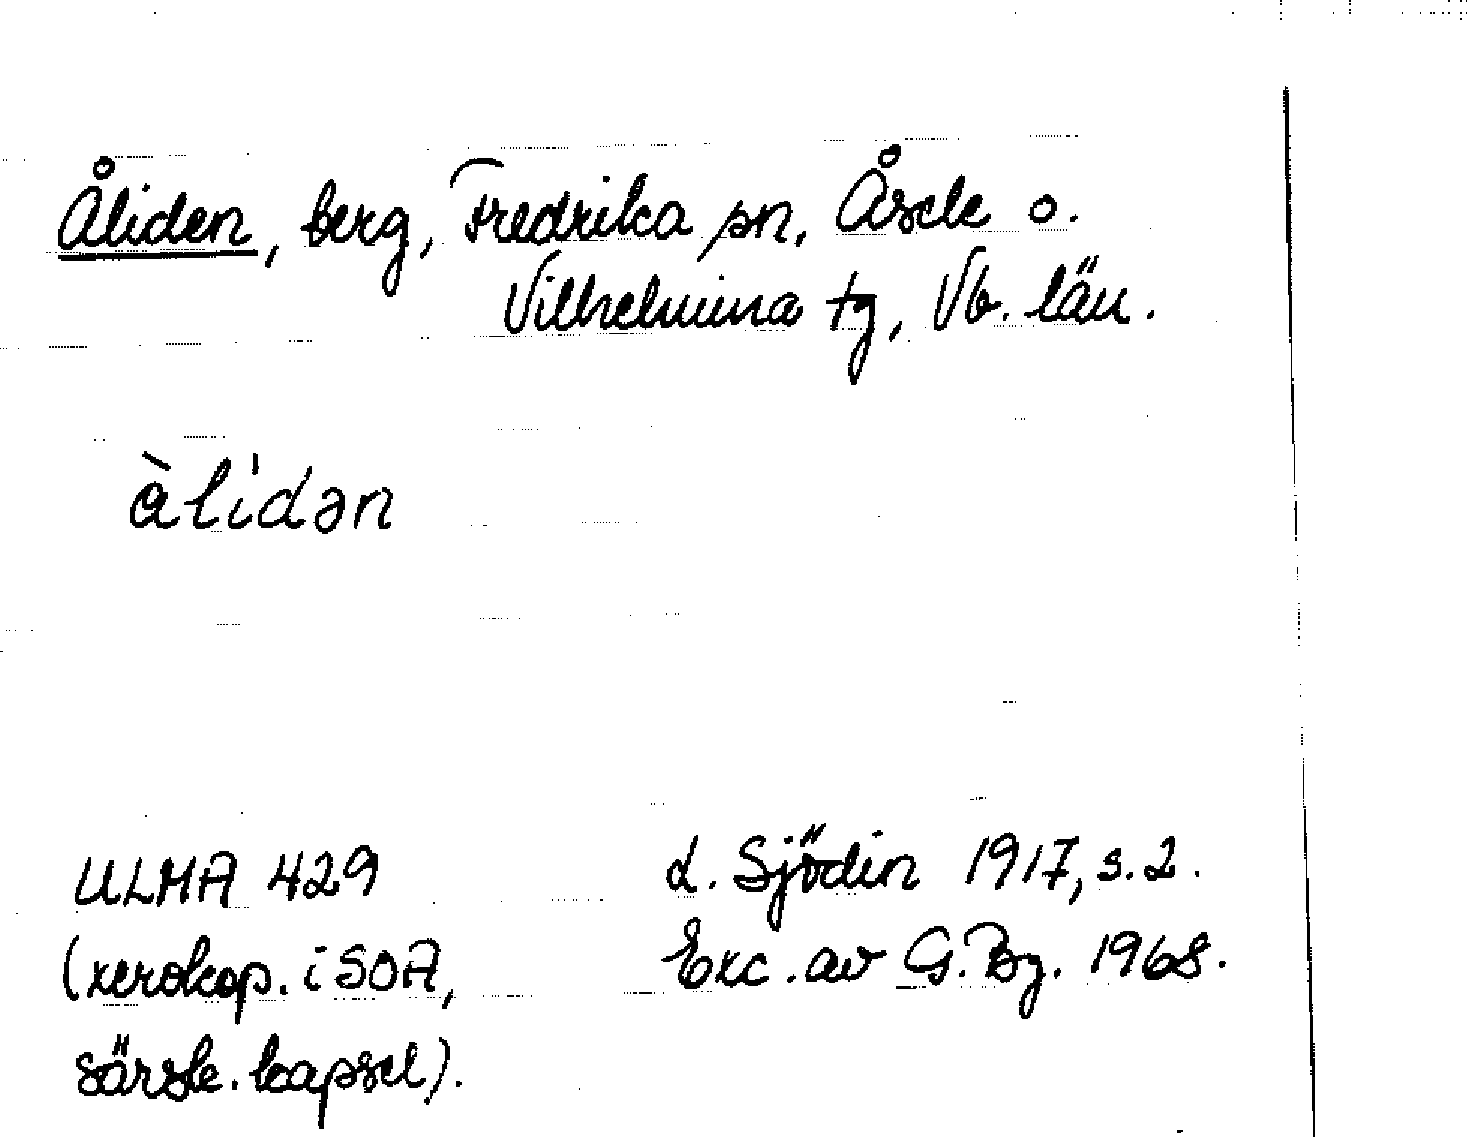 Åliden, berg, Fredrika sn, Åsele o.
Vilhelmina tg, Vb. län.
àli'dən
ULMA 429
(xerokop. i SOA,
särsk. kapsel).
L. Sjödin 1917, s. 2.
Exc. av G. Bg. 1968.